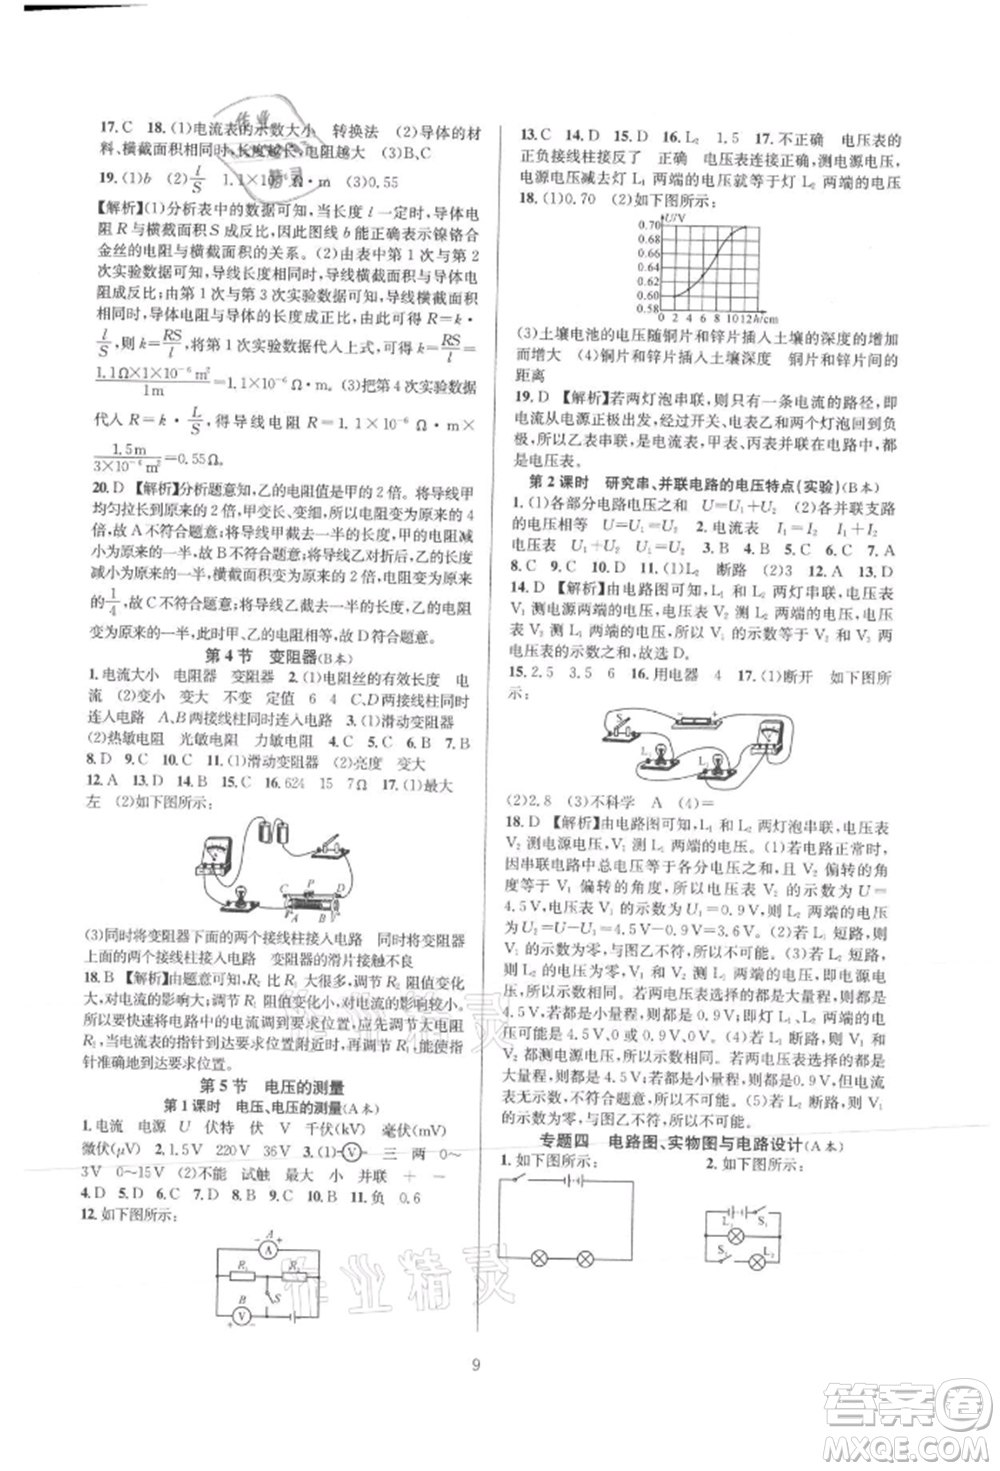 17.C 18.(1)电流表的示数大小 转换法 (2)导体的材
料、横截面积相同时,长度越长,电阻越大 (3)B、C
19.(1)b (2) l/S 1.1×10 Ω·m (3)0.55
【解析】(1)分析表中的数据可知,当长度 l 一定时,导体电
阻 R 与横截面积 S 成反比,因此图线 b 能正确表示镍铬合
金丝的电阻与横截面积的关系。(2)由表中第 1 次与第 2
次实验数据可知,导线长度相同时,导线横截面积与导体
电阻成反比;由第 1 次与第 3 次实验数据可知,导线横截面
积相同时,导体电阻与导体的长度成正比,可得 R=k·
l/S,则 k=RS/l,将第 1 次实验数据代入上式,可得 k=RS/l=
1.1Ω×1×10⁻⁶m²/1m=1.1×10⁻⁶ Ω·m。(3)把第 4 次实验数据
代人 R=k·L/S,得导线电阻 R=1.1×10⁻⁶ Ω·m×
1.5m/3×10⁻⁶m²=0.55Ω。
20.D 【解析】分析题意可知,乙的电阻值是甲的 4 倍,将甲
均匀拉长到原来的 2 倍,甲变长、变细,电阻变为原来的 4
倍,故 A 不符合题意;将导线甲截去一半的长度,电阻减
小为原来的一半,故 B 不符合题意;将导线乙对折后,乙的
长度减小为原来的一半,横截面积加倍,电阻变为原来的
1/4,故 C 不符合题意;将导线乙截去一半的长度,乙的电阻
变为原来的一半,此时甲、乙的电阻不相等,故 D 符合题意。
第 4 节 变阻器(B本)
1.电流大小 电阻器 变阻器 2.(1)电阻丝的有效长度 电
流 (2)变小 变大 不变 定值 6 4 C、D两接线柱同时
连入电路 A、B两接线柱同时连入电路 3.(1)滑动变阻器
(2)热敏电阻 光敏电阻 力敏电阻 4.C 5.C 6.B 7.B
8.D 9.C 10.C 11.(1)滑动变阻器 (2)亮度 变大
12.A 13.D 14.B 15.C 16.624 15 7Ω 17.(1)最大
左 (2)如下图所示:
C P D
A B
(3)同时将变阻器下面的两个接线柱接入电路 同时将变阻器
上面的两个接线柱接入电路 变阻器的滑片接触不良
18.B【解析】由题意可知,R₂ 比 R₁ 大很多,调节 R₂ 阻值变化
大,对电流的影响大;调节 R₁ 阻值变化小,对电流的影响较小。
所以要快速将电路中的电流调到要求位置,应先调节大电阻
R₂,当电流表的指针到达要求位置附近时,再调节 R₁,使电流指
针准确地到达要求位置。
第 5 节 电压的测量
第 1 课时 电压、电压的测量(A本)
1.电流 电源 U 伏特 伏 V 千伏(kV) 毫伏(mV)
微伏(μV) 2.1.5V 220V 36V 3.(1)Ⓥ 三 两 0～
3V 0～15V (2)不能 试触 并联 + －
4.D 5.D 6.C 7.C 8.D 9.C 10.B 11.负 0.6
12.如下图所示:
A
－ A +
R₁ R₂
B S
V
－ +
13.C 14.D 15.D 16.L₂ 1.5 17.不正确 电压表的
正负接线柱接反了 正确 电压表连接正确,测电源电压,
电源电压减去灯 L₁ 两端的电压就等于灯 L₂ 两端的电压
18.(1)0.70 (2)如下图所示:
U/V
0.70
0.68
0.66
0.64
0.62
0.60
0.58
0 2 4 6 8 10 12 h/cm
(3)土壤电池的电压随铜片和锌片插入土壤的深度的增加
而增大 (4)铜片和锌片插入土壤深度 铜片和锌片间的
距离
19.D【解析】若两灯泡串联,则只有一条电流的路径,即
电流从电源正极出发,经过开关、电表乙和两个灯泡回到负
极,所以乙表串联,是电流表,甲表、丙表并联在电路中,都
是电压表。
第 2 课时 研究串、并联电路的电压特点(实验)(B本)
1.(1)各部分电路电压之和 U=U₁+U₂ (2)各并联支路
的电压相等 U=U₁=U₂ 2.电流表 I₁=I₂ I=I₁+I₂
电压表 U₁=U₂ U=U₁+U₂ 3.B 4.B 5.C 6.C 7.A
8.C 9.C 10.D 11.(1)L₂ 断路 (2)3 12.A 13.D
14.D【解析】由电路图可知,L₁ 和 L₂ 两灯泡串联,电压表
V₁ 测电源两端的电压,V₂ 测 L₂ 两端的电压,V₃ 测
L₁ 两端的电压,所以 V₁ 的示数等于 V₂ 的示数与 V₃ 的
示数之和,故选 D。
15.2.5 3.5 6 16.用电器 4 17.(1)断开 如下图所
示:
－ +
L₁ L₂
(2)2.8 (3)不科学 A (4)=
18.D 【解析】由电路图可知,L₁ 和 L₂ 两灯泡串联,电压表
V₂ 测电源电压,V₁ 测 L₁ 的电压。(1)若电路正常,
因串联电路中总电压等于各分电压之和,V₂ 偏转的角
度等于 V₁ 偏转的角度,所以电压表 V₂ 的示数为 U=
4.5V,电压表 V₁ 的示数为 U₁=0.9V,所以 L₂ 两端的电压为
U₂=U－U₁=4.5V－0.9V=3.6V。(2)若 L₁ 短路,则
V₁ 的示数为零,与图乙不符,所以不可能。(3)若 L₂ 短
路,则两电压表测的都是 L₁ 两端的电压,即电源电压,
所以两电压表的示数相等。若两电压表选择的都是大量程,
则示数都是4.5V;若两电压表选择的都是小量程,
则示数都是0.9V;即灯 L₁、灯 L₂ 和电源的电
压可能是 4.5V、0 或 0.9V、0。(4)若 L₁ 断路,则 V₁ 和
V₂ 都测电源电压,V₁ 的示数为4.5V或0.9V,但此时
电流表无示数,不符合题意,所以不可能。(5)若 L₂ 断路,则 V₁
的示数为零,与图乙不符,所以不可能。
专题四 电路图、实物图与电路设计(A本)
1.如下图所示: 2.如下图所示:
L₁ S₁
S₂ L₂
9
作业精灵
答案圈
MXQE.COM